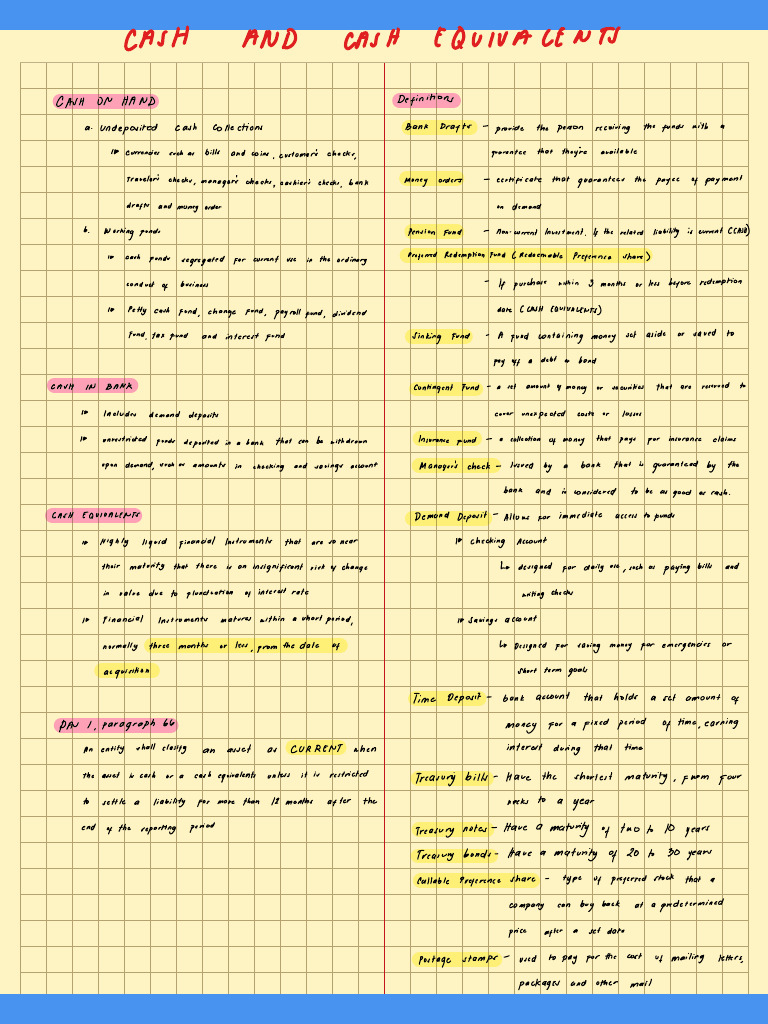 CASH AND CASH EQUIVALENTS
CASH ON HAND
a. Undeposited Cash Collections
Currencies such as bills and coins, customer's checks,
Traveler's checks, manager's checks, cashier's checks, bank
drafts and money order
b. Working funds
Cash funds segregated for current use in the ordinary
conduct of business
Petty cash fund, change fund, payroll fund, dividend
fund, tax fund and interest fund
CASH IN BANK
Includes demand deposits
unrestricted funds deposited in a bank that can be withdrawn
upon demand, such as amounts in checking and savings account
CASH EQUIVALENTS
Highly liquid financial instruments that are so near
their maturity that there is an insignificant risk of change
in value due to fluctuation of interest rate
Financial Instruments matures within a short period,
normally three months or less, from the date of
acquisition
PAS 1, paragraph 66
An entity shall classify an asset as CURRENT when
the asset is cash or a cash equivalents unless it is restricted
to settle a liability for more than 12 months after the
end of the reporting period
Definitions
Bank Drafts - provide the person receiving the funds with a
guarantee that they're available
Money orders - certificate that guarantees the payee of payment
on demand
Pension Fund - Non-current Investment. If the related liability is current (CASH)
Preferred Redemption Fund (Redeemable Preference share)
- If purchase within 3 months or less before redemption
date (CASH EQUIVALENTS)
Sinking Fund - A fund containing money set aside or saved to
pay off a debt or bond
Contingent Fund - a set amount of money or securities that are reserved to
cover unexpected costs or losses
Insurance fund - a collection of money that pays for insurance claims
Manager's check - Issued by a bank that is guaranteed by the
bank and is considered to be as good as cash.
Demand Deposit - Allows for immediate access to funds
Checking Account
↳ designed for daily use, such as paying bills and
writing checks
Savings account
↳ Designed for saving money for emergencies or
short term goals
Time Deposit - bank account that holds a set amount of
money for a fixed period of time, earning
interest during that time
Treasury bills - Have the shortest maturity, from four
weeks to a year
Treasury notes - Have a maturity of two to 10 years
Treasury bonds - Have a maturity of 20 to 30 years
Callable Preference share - type of preferred stock that a
company can buy back at a predetermined
price after a set date
Postage stamps - used to pay for the cost of mailing letters,
packages and other mail